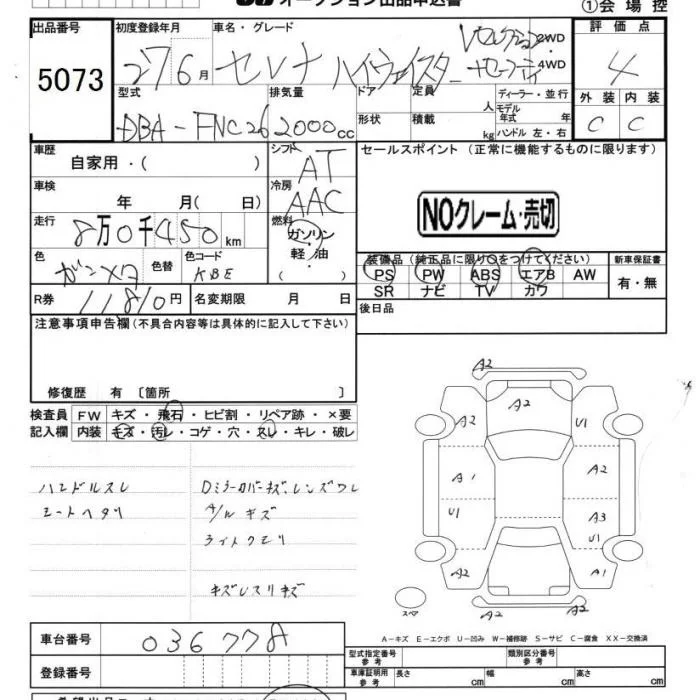 オークション出品申込書 ①会場控
出品番号 初度登録年月 車名・グレード 評価点
5073 27 6月 セレナ ハイウェイスター Vセレクション +セーフティ 2WD 4WD 4
型式 排気量 ドア 定員 ディーラー・並行 外装 内装
DBA-FNC26 2000cc 形状 積載 人 kg モデル年式 年 ハンドル 左・右 C C
車歴 シフト セールスポイント (正常に機能するものに限ります)
自家用・( ) AT
車検 年 月( 日) 冷房 AAC
NOクレーム・売切
走行 8万0千450km 燃料 ガソリン・軽油・( )
色 ガンメタ 色替 色コード KBE
装備品 (純正品に限り○をつけてください) 新車保証書
PS PW ABS エアB AW 有・無
SR ナビ TV カワ
R券 11810円 名変期限 月 日
後日品
注意事項申告欄 (不具合内容等は具体的に記入して下さい)
修復歴 有 [箇所 ]
検査員 FW キズ・飛石・ヒビ割・リペア跡・×要
記入欄 内装 キズ・汚レ・コゲ・穴・スレ・キレ・破レ
ハンドルスレ Dミラーカバーキズ、レンズワレ
シートヘタリ A/Wキズ
ライトクモリ
キズレスリキズ
A2
A2
A2 U1
A1 A2
U1 A3
U1
A2 A1
A2 A2
スペア
A-キズ E-エクボ U-凹み W-補修跡 S-サビ C-腐食 XX-交換済
車台番号 036778
型式指定番号 参考 類別区分番号 参考
登録番号 車庫証明用 参考 長さ cm 幅 cm 高さ cm